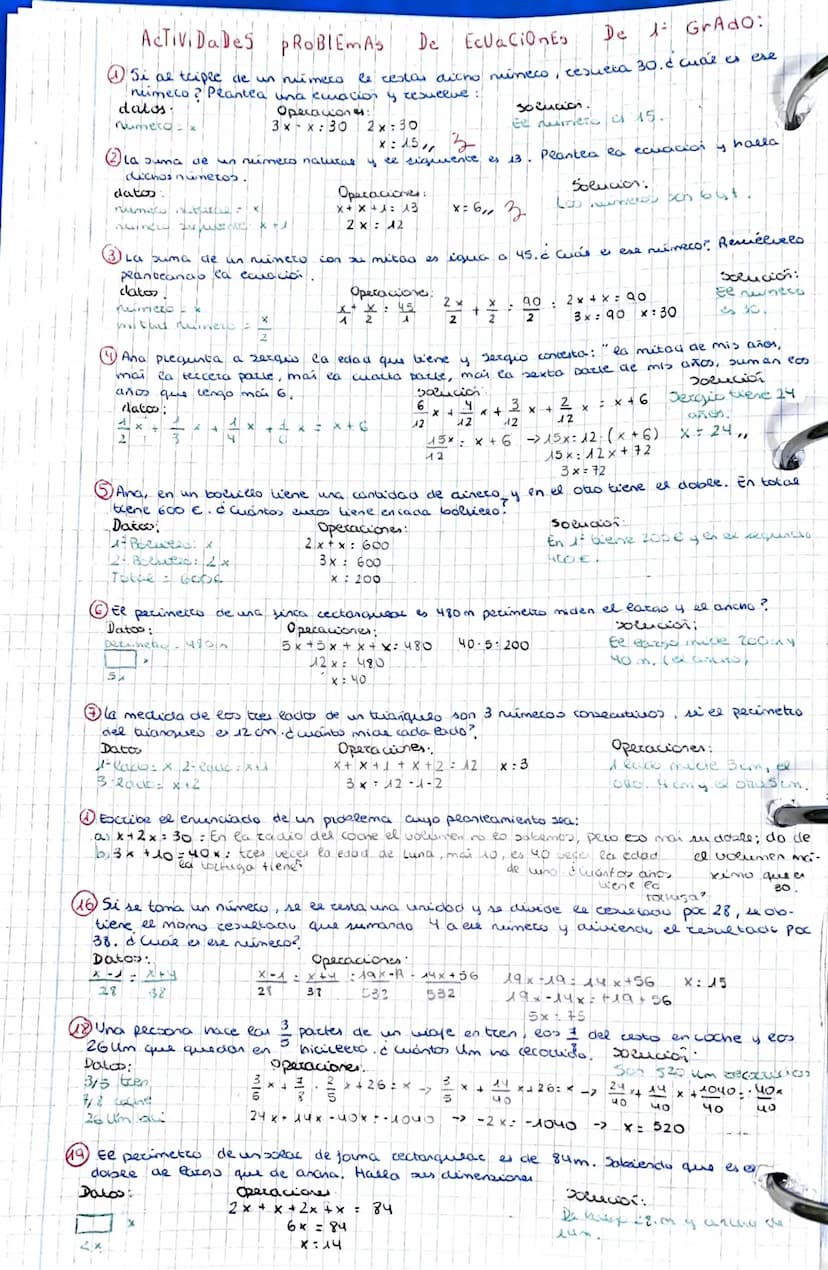 ACTIVIDADES PROBLEMAS DE ECUACIONES DE 1º GRADO:
① Si al triple de un número le restas dicho número, resulta 30. ¿Cuál es ese
número? Plantea una ecuación y resuelve:
datos: Operaciones: Solución.
número = x 3x - x = 30 2x = 30 El número es 15.
x = 15,,
② La suma de un número natural y el siguiente es 13. Plantea la ecuación y halla
dichos números.
datos: Operaciones: Solución:
número natural = x x + x + 1 = 13 x = 6,, Los números son 6 y 7.
número siguiente x + 1 2x = 12
③ La suma de un número con su mitad es igual a 45. ¿Cuál es ese número? Resuélvelo
planteando la ecuación.
datos: Operaciones: Solución:
número = x x/1 + x/2 = 45/1 2x/2 + x/2 = 90/2 = 2x + x = 90 El número
mitad número = x/2 3x = 90 x = 30 es 30.
④ Ana pregunta a Sergio la edad que tiene y Sergio contesta: "la mitad de mis años,
más la tercera parte, más la cuarta parte, más la sexta parte de mis años, suman los
años que tengo más 6. Solución: Solución
datos: 6/12 x + 4/12 x + 3/12 x + 2/12 x = x + 6 Sergio tiene 24
1/2 x + 1/3 x + 1/4 x + 1/6 x = x + 6 años.
15x/12 = x + 6 → 15x = 12·(x + 6) x = 24,,
15x = 12x + 72
3x = 72
⑤ Ana, en un bolsillo tiene una cantidad de dinero, y en el otro tiene el doble. En total
tiene 600 €. ¿Cuántos euros tiene en cada bolsillo?
Datos: Operaciones: Solución:
1º Bolsillo: x 2x + x = 600 En 1º tiene 200€ y en el segundo
2º Bolsillo: 2x 3x = 600 400€.
Total = 600€ x = 200
⑥ El perímetro de una finca rectangular es 480m perímetro miden el largo y el ancho?
Datos: Operaciones: Solución:
perímetro = 480m 5x + 5x + x + x = 480 40·5 = 200 El largo mide 200m y
x 12x = 480 40m. (el ancho)
5x x = 40
⑦ La medida de los tres lados de un triángulo son 3 números consecutivos, si el perímetro
del triángulo es 12 cm. ¿Cuánto mide cada lado?
Datos Operaciones: Operaciones:
1º lado: x, 2º lado: x+1 x + x + 1 + x + 2 = 12 x = 3 1 lado mide 3cm, el
3º lado = x+2 3x = 12 - 1 - 2 otro 4cm y el otro 5cm.
① Escribe el enunciado de un problema cuyo planteamiento sea:
a) x + 2x = 30: En la radio del coche el volumen no lo sabemos, pero eso más su doble; da de
b) 3x + 10 = 40x: tres veces la edad de Luna, más 10, es 40 veces la edad el volumen má-
la tortuga tiene de uno ¿Cuántos años ximo que es
tiene la 30.
tortuga?
⑯ Si se toma un número, se le resta una unidad y se divide el resultado por 28, se ob-
tiene el mismo resultado que sumando 4 a ese número y dividiendo el resultado por
38. ¿Cuál es ese número?
Datos: Operaciones:
x-1/28 = x+4/38 x-1/28 = x+4/38 = 19x-19/532 = 14x+56/532 19x - 19 = 14x + 56 x = 15
19x - 14x = +19 + 56
5x = 75
⑱ Una persona hace los 3/5 partes de un viaje en tren, los 7/8 del resto en coche y los
26 km que quedan en bicicleta. ¿Cuántos km ha recorrido. Solución:
Datos: Operaciones: Son 520 km
3/5 tren 3/5 x + 7/8 · 2/5 x + 26 = x → 3/5 x + 14/40 x + 26 = x → 24/40 x + 14/40 x + 1040/40 = 40x/40
7/8 coche
26 km 24x + 14x - 40x = -1040 → -2x = -1040 → x = 520
⑲ El perímetro de un solar de forma rectangular es de 84m. Sabiendo que es el
doble de largo que de ancho. Halla sus dimensiones
Datos: Operaciones Solución:
x 2x + x + 2x + x = 84 28 m y ancho de
2x 6x = 84 14m.
x = 14